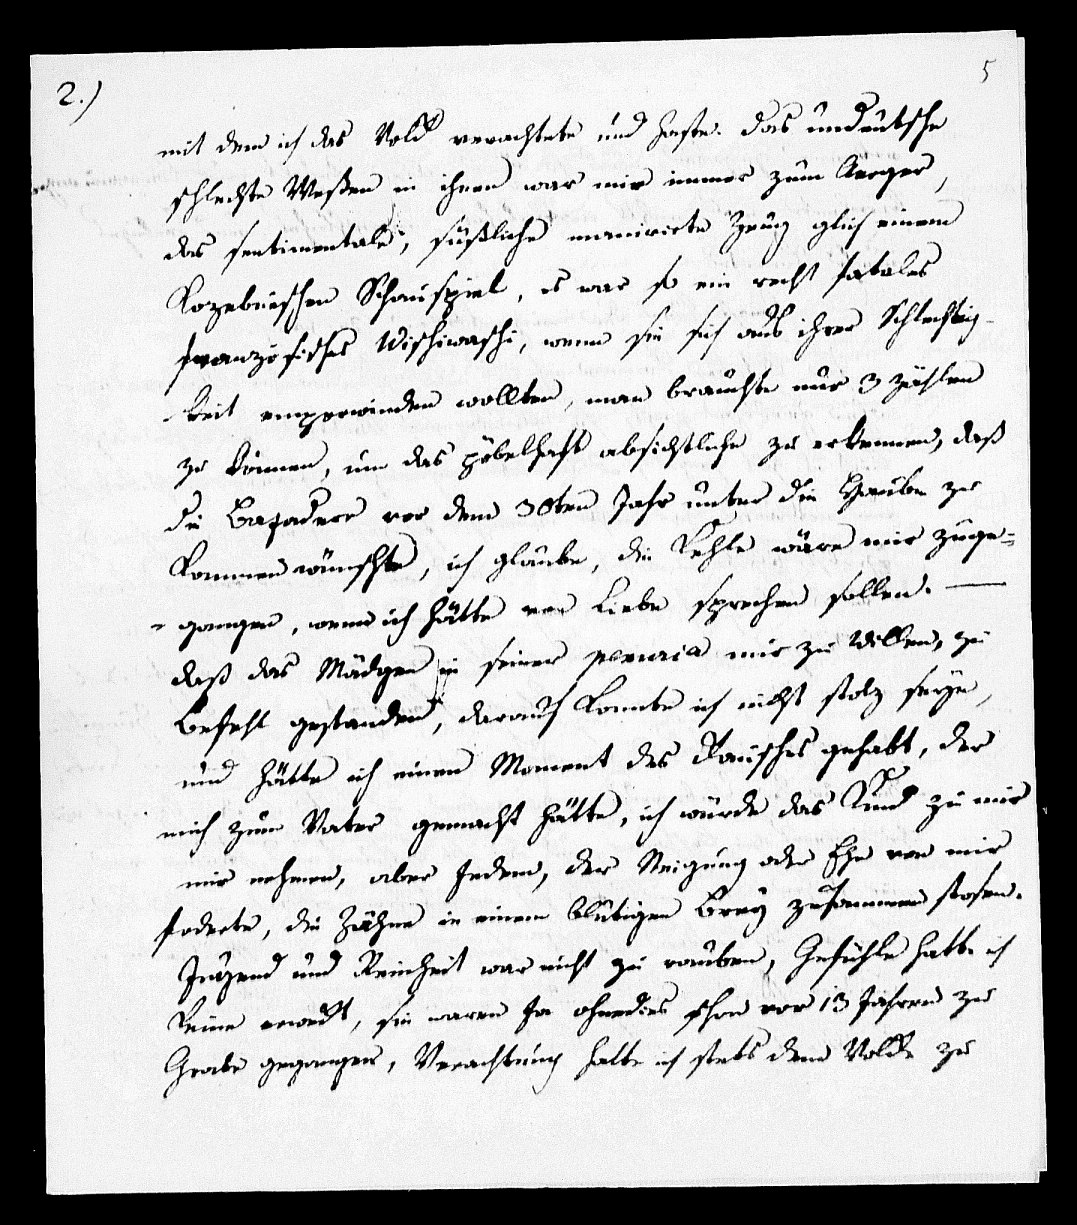 2.)
5
mit dem ich das Volk verachtete und haßte. das undeutsche
schlechte Weßen in ihnen war mir immer zum Aerger,
das sentimentale, süßliche manirirte Zeug glich einem
Kozebueschen Schauspiel, es war so ein recht fatales
französisches Wischiwaschi, wenn sie sich aus ihrer Schlechtig-
keit emporwinden wollten, man brauchte nur 3 zählen
zu können, um das pöbelhaft absichtliche zu erkennen, daß
die Bajadere vor dem 30ten Jahr unter die Haube zu
kommen wünschte, ich glaube, die Kehle wäre mir zuge-
- gangen, wenn ich hätte von Liebe sprechen sollen. —
daß das Mädgen in seiner penuria mir zu Willen, zu
Befehl gestanden, darauf konnte ich nicht stolz seyn,
und hätte ich einen Moment des Rausches gehabt, der
mich zum Vater gemacht hätte, ich würde das Kind zu mir
mir nehmen, aber Jedem, der Neigung oder Ehe von mir
foderte, die Zähne in einem blutigen Brey zusammen stosen.
Jugend und Reinheit war nicht zu rauben, Gefühle hatte ich
keine erweckt, sie waren ja ohnedies schon vor 13 Jahren zu
Grabe gegangen, Verachtung hatte ich stets dem Volke zu